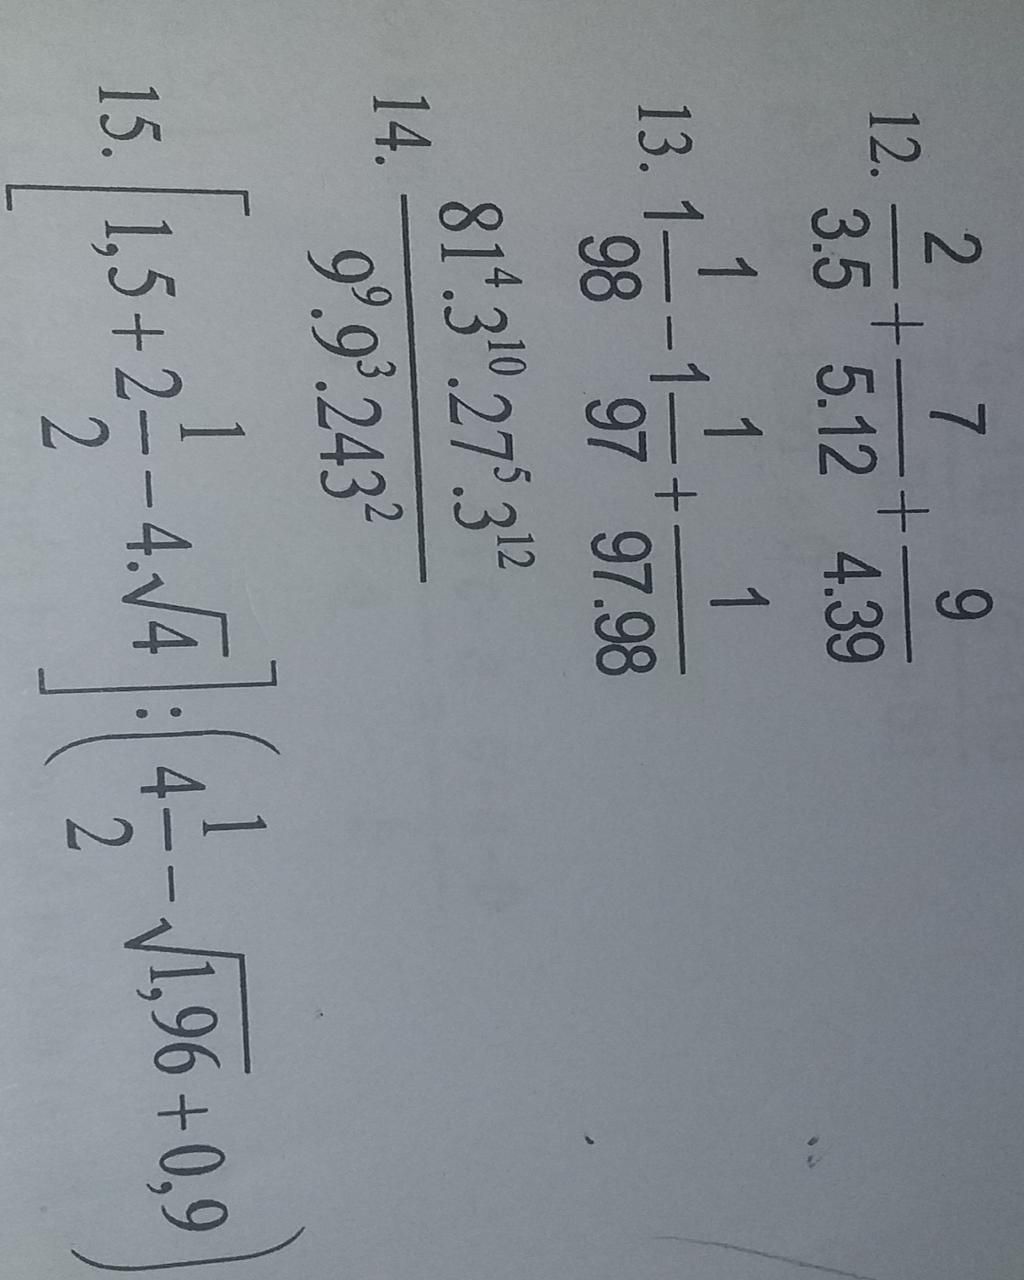 12. \frac{2}{3.5} + \frac{7}{5.12} + \frac{9}{4.39}
13. 1\frac{1}{98} - 1\frac{1}{97} + \frac{1}{97.98}
14. \frac{81^4.3^{10}.27^5.3^{12}}{9^9.9^3.243^2}
15. \left[1,5 + 2\frac{1}{2} - 4.\sqrt{4}\right] : \left(4\frac{1}{2} - \sqrt{1,96} + 0,9\right)